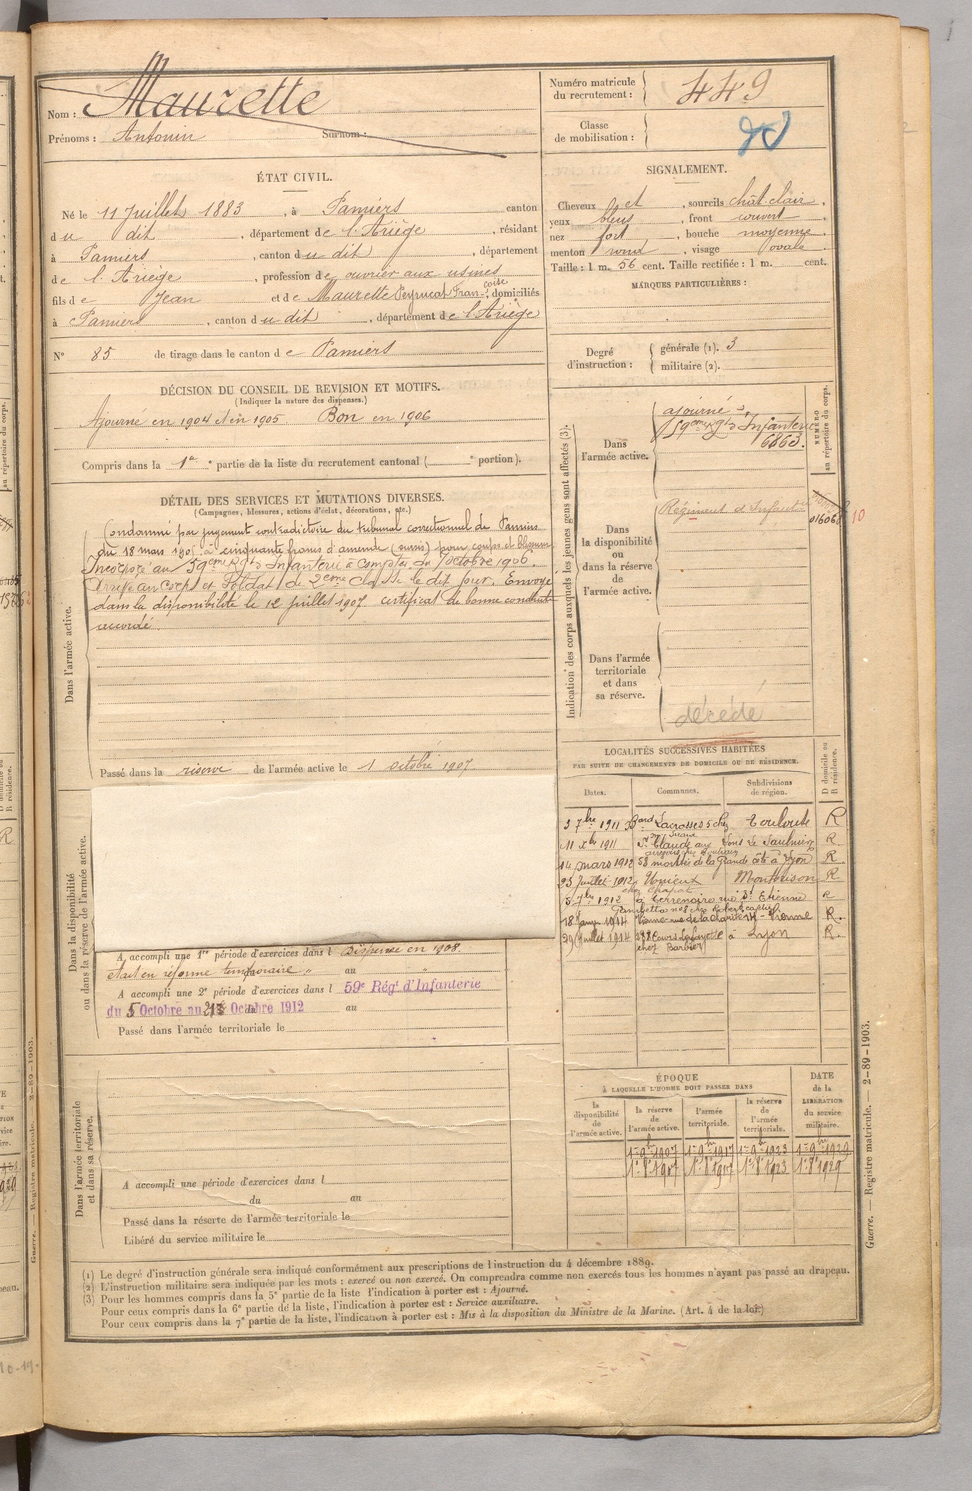 Nom : Maurette
Prénoms : Antonin Surnom :
Numéro matricule du recrutement : 449
Classe de mobilisation :
ÉTAT CIVIL.
Né le 11 Juillet 1883, à Pamiers canton
du dit, département de l'Ariège, résidant
à Pamiers, canton du dit, département
de l'Ariège, profession de ouvrier aux usines
fils de Jean et de Maurette Peyrucat Françoise, domiciliés
à Pamiers, canton du dit, département de l'Ariège
N° 85 de tirage dans le canton de Pamiers
SIGNALEMENT.
Cheveux et, sourcils chât. clair,
yeux bleus, front couvert
nez fort, bouche moyenne
menton rond, visage ovale
Taille : 1 m. 56 cent. Taille rectifiée : 1 m. cent.
MARQUES PARTICULIÈRES :
Degré d'instruction : générale (1). 3
militaire (2).
DÉCISION DU CONSEIL DE REVISION ET MOTIFS.
(Indiquer la nature des dispenses.)
Ajourné en 1904 et en 1905 Bon en 1906
Compris dans la 1re partie de la liste du recrutement cantonal ( portion).
DÉTAIL DES SERVICES ET MUTATIONS DIVERSES.
(Campagnes, blessures, actions d'éclat, décorations, etc.)
Dans l'armée active.
Condamné par jugement contradictoire du tribunal correctionnel de Pamiers
du 18 mars à cinquante francs d'amende (sursis) pour coups et blessures
Incorporé au 59ème Rgt d'Infanterie à compter du 7 octobre 1906.
Arrivé au Corps et Soldat de 2ème classe le dit jour. Envoyé
dans la disponibilité le 12 juillet 1907. certificat de bonne conduite
accordé.
Passé dans la réserve de l'armée active le 1 octobre 1907.
Indication des corps auxquels les jeunes gens sont affectés (3).
NUMÉRO au répertoire du corps.
Dans l'armée active.
ajourné
59ème Rgt d'Infanterie
6863.
Dans la disponibilité ou dans la réserve de l'armée active.
Régiment d'Infanterie
10
Dans l'armée territoriale et dans sa réserve.
décédé
LOCALITÉS SUCCESSIVES HABITÉES
PAR SUITE DE CHANGEMENTS DE DOMICILE OU DE RÉSIDENCE.
Dates. Communes. Subdivisions de région. D domicile ou R résidence.
3 7bre 1911 Toulouse R
11 Xbre 1911 St Claude Lons le Saulnier R
14 mars 1912 58 montée de la Grande côte à Lyon R
25 juillet 1912 Unieux Montbrison R
5 7bre 1912 à Terrenoire St Etienne R
18 Janv 1914 Vienne R.
29 Juillet 1914 Cours Lafayette à Lyon R.
chez Barbier
Dans la disponibilité ou dans la réserve de l'armée active.
A accompli une 1re période d'exercices dans l Dispensé en 1908.
étant en réforme temporaire au
A accompli une 2e période d'exercices dans l 59e Régt d'Infanterie
du 5 Octobre au Octobre 1912 au
Passé dans l'armée territoriale le
ÉPOQUE
À LAQUELLE L'HOMME DOIT PASSER DANS
DATE de la LIBÉRATION du service militaire.
la disponibilité de l'armée active. la réserve de l'armée active. l'armée territoriale. la réserve de l'armée territoriale.
Dans l'armée territoriale et dans sa réserve.
A accompli une période d'exercices dans l
du au
Passé dans la réserve de l'armée territoriale le
Libéré du service militaire le
(1) Le degré d'instruction générale sera indiqué conformément aux prescriptions de l'instruction du 4 décembre 1889.
(2) L'instruction militaire sera indiquée par les mots : exercé ou non exercé. On comprendra comme non exercés tous les hommes n'ayant pas passé au drapeau.
(3) Pour les hommes compris dans la 5e partie de la liste l'indication à porter est : Ajourné.
Pour ceux compris dans la 6e partie de la liste, l'indication à porter est : Service auxiliaire.
Pour ceux compris dans la 7e partie de la liste, l'indication à porter est : Mis à la disposition du Ministre de la Marine. (Art. 4 de la loi.)
Guerre. — Registre matricule. — 2-89-1903.